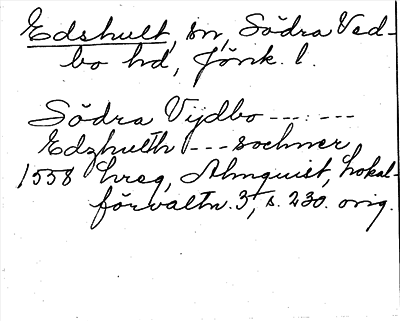 Edshult, sn, Södra Ved-
bo hd, Jönk. l.
Södra Vijdbo --- ---
Edzhulth --- sochner
1558 hreg, Almquist, Lokal-
förvaltn. 3, s. 230. orig.